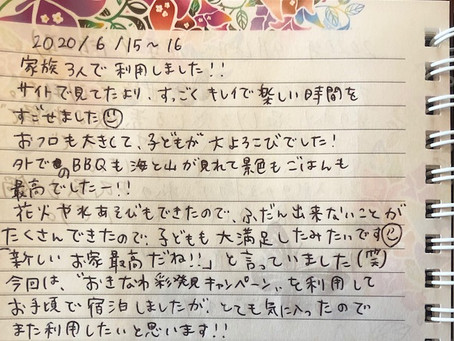 2020/6/15～16
家族3人で利用しました!!
サイトで見てたより、すっごくキレイで楽しい時間を
すごせました
おフロも大きくて、子どもが大よろこびでした!
外でのBBQも海と山が見れて景色もごはんも
最高でしたー!!
花火や水あそびもできたので、ふだん出来ないことが
たくさんできたので、子どもも大満足したみたいです
「新しいお家最高だね!!」と言っていました(笑)
今回は、"おきなわ彩発見キャンペーン"を利用して
お手頃で宿泊しましたが、とても気に入ったので
また利用したいと思います!!